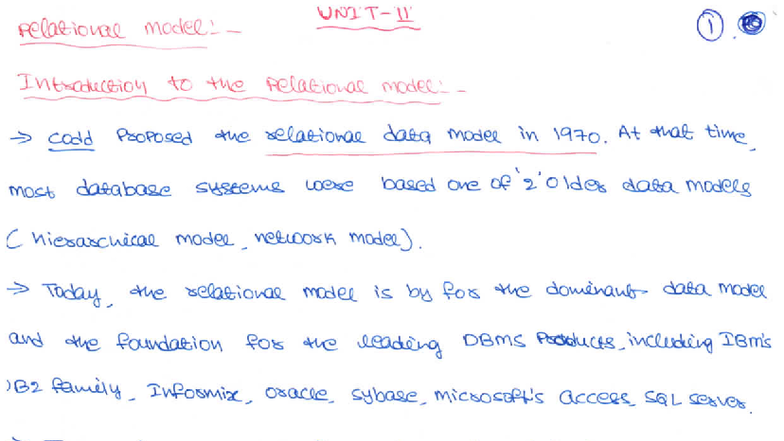 UNIT-II
1
Relational model:-
Introduction to the relational model:-
→ Codd Proposed the relational data model in 1970. At that time,
most database systems were based one of '2' Older data models
(hierarchical model, network model).
→ Today, the relational model is by for the dominant data model
and the foundation for the leading DBMS Products, including IBM's
DB2 family, Informix, oracle, sybase, microsoft's access, SQL server.